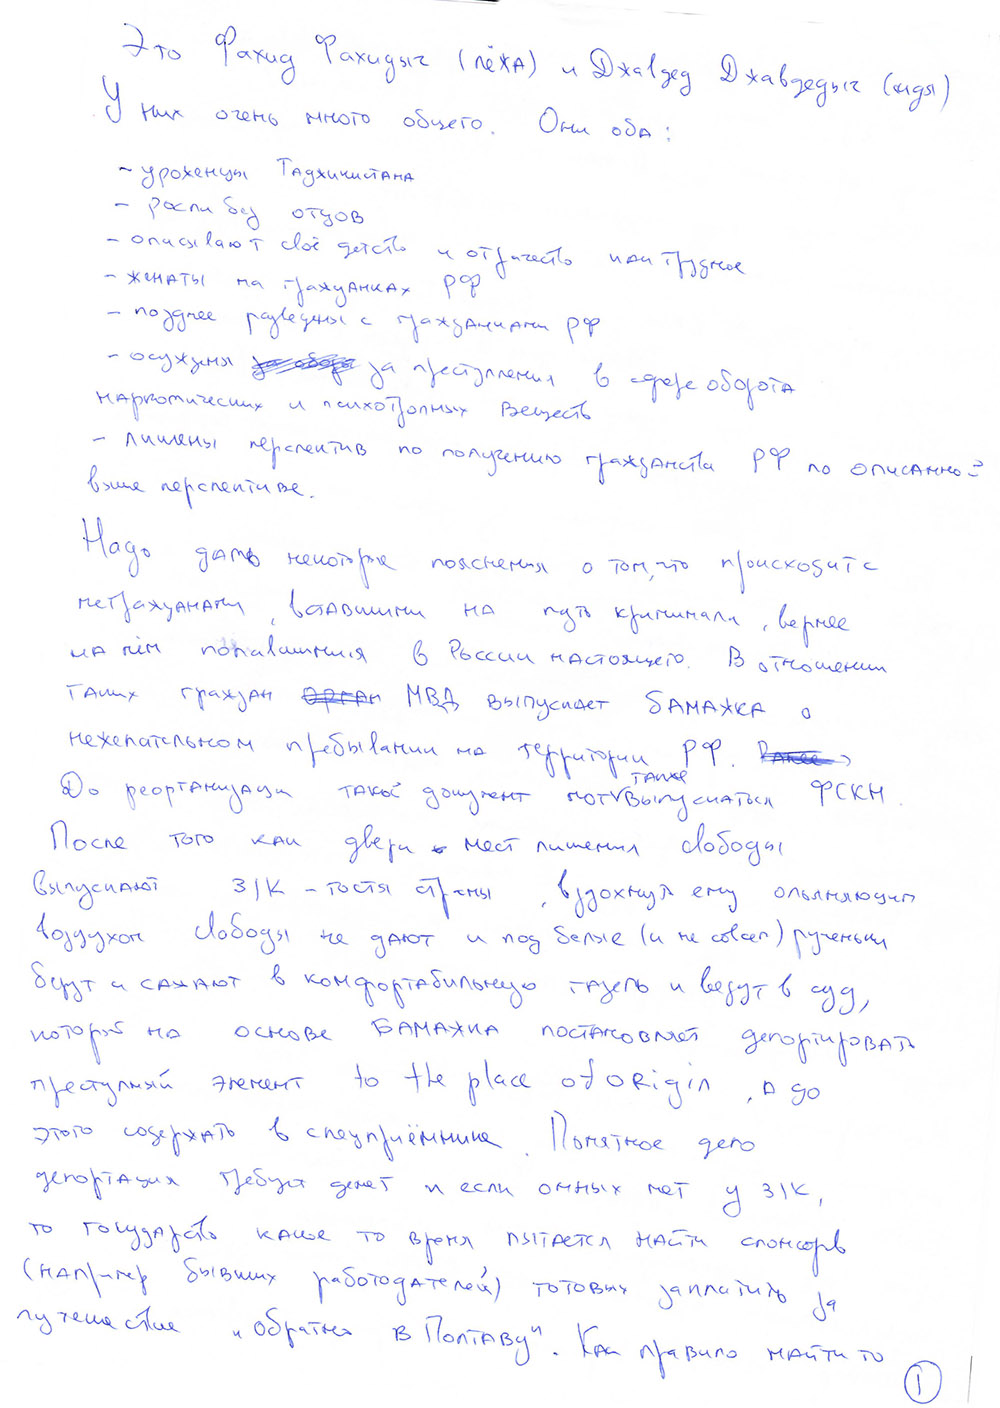 Это Фахид Фахидыч (лёха) и Джавдед Джавдедыч (
У них очень много общего. Они оба:
- уроженцы Таджикистана
- росли без отцов
- описывают своё детство и отрочество как трудное
- женаты на гражданках РФ
- позднее разведены с гражданками РФ
- осуждены за преступления в сфере оборота
наркотических и психотропных веществ
- лишены перспектив по получению гражданства РФ по описанной
выше перспективе.
Надо дать некоторые пояснения о том, что происходит с
негражданами, вставшими на путь криминала, вернее
на нём попавшимися в России настоящего. В отношении
таких граждан МВД выпускает БАМАЖКА о
нежелательном пребывании на территории РФ.
До реорганизации такой документ мог также выпускаться ФСКН.
После того как двери мест лишения свободы
выпускают З/К - гостя страны, вздохнуть ему опьяняющим
воздухом свободы не дают и под белые (и не совсем) рученьки
берут и сажают в комфортабильную газель и везут в суд,
который на основе БАМАЖКА постановляет депортировать
преступный элемент to the place of ORigin, а до
этого содержать в спецприёмнике. Понятное дело
депортация требует денег и если оных нет у З/К,
то государство какое то время пытается найти спонсоров
(например бывших работодателей) готовых заплатить за
путешествие „обратно в Полтаву". Как правило найти то
1